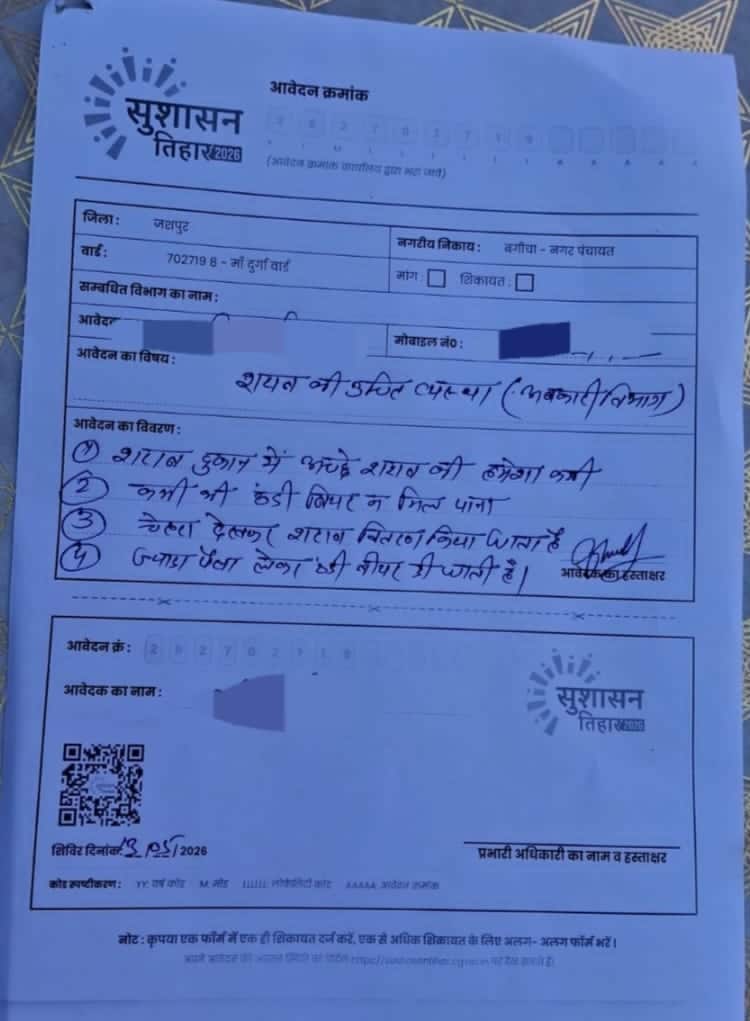 सुशासन
तिहार 2026
आवेदन क्रमांक
(आवेदन क्रमांक कार्यालय द्वारा भरा जावे)
जिला : जशपुर
नगरीय निकाय : बगीचा - नगर पंचायत
वार्ड : 702719 8 - माँ दुर्गा वार्ड
मांग : शिकायत :
सम्बधित विभाग का नाम :
आवेदक
मोबाइल नं0 :
आवेदन का विषय :
शराब की उचित व्यस्था (अबकारी विभाग)
आवेदन का विवरण :
1 शराब दुकान में अच्छे शराब की हमेशा कमी
2 कभी भी ठंडी बियर न मिल पाना
3 चेहरा देखकर शराब वितरण किया जाता है
4 ज्यादा पैसा लेकर ठंडी बीयर दी जाती है।
आवेदक का हस्ताक्षर
आवेदन क्रं :
आवेदक का नाम :
सुशासन
तिहार 2026
शिविर दिनांक 13/05/2026
प्रभारी अधिकारी का नाम व हस्ताक्षर
कोड स्पष्टीकरण : YY: वर्ष कोड M: मोड LLLLLL: लोकेलिटी कोड AAAAA: आवेदन क्रमांक
नोट : कृपया एक फॉर्म में एक ही शिकायत दर्ज करें, एक से अधिक शिकायत के लिए अलग- अलग फॉर्म भरें।